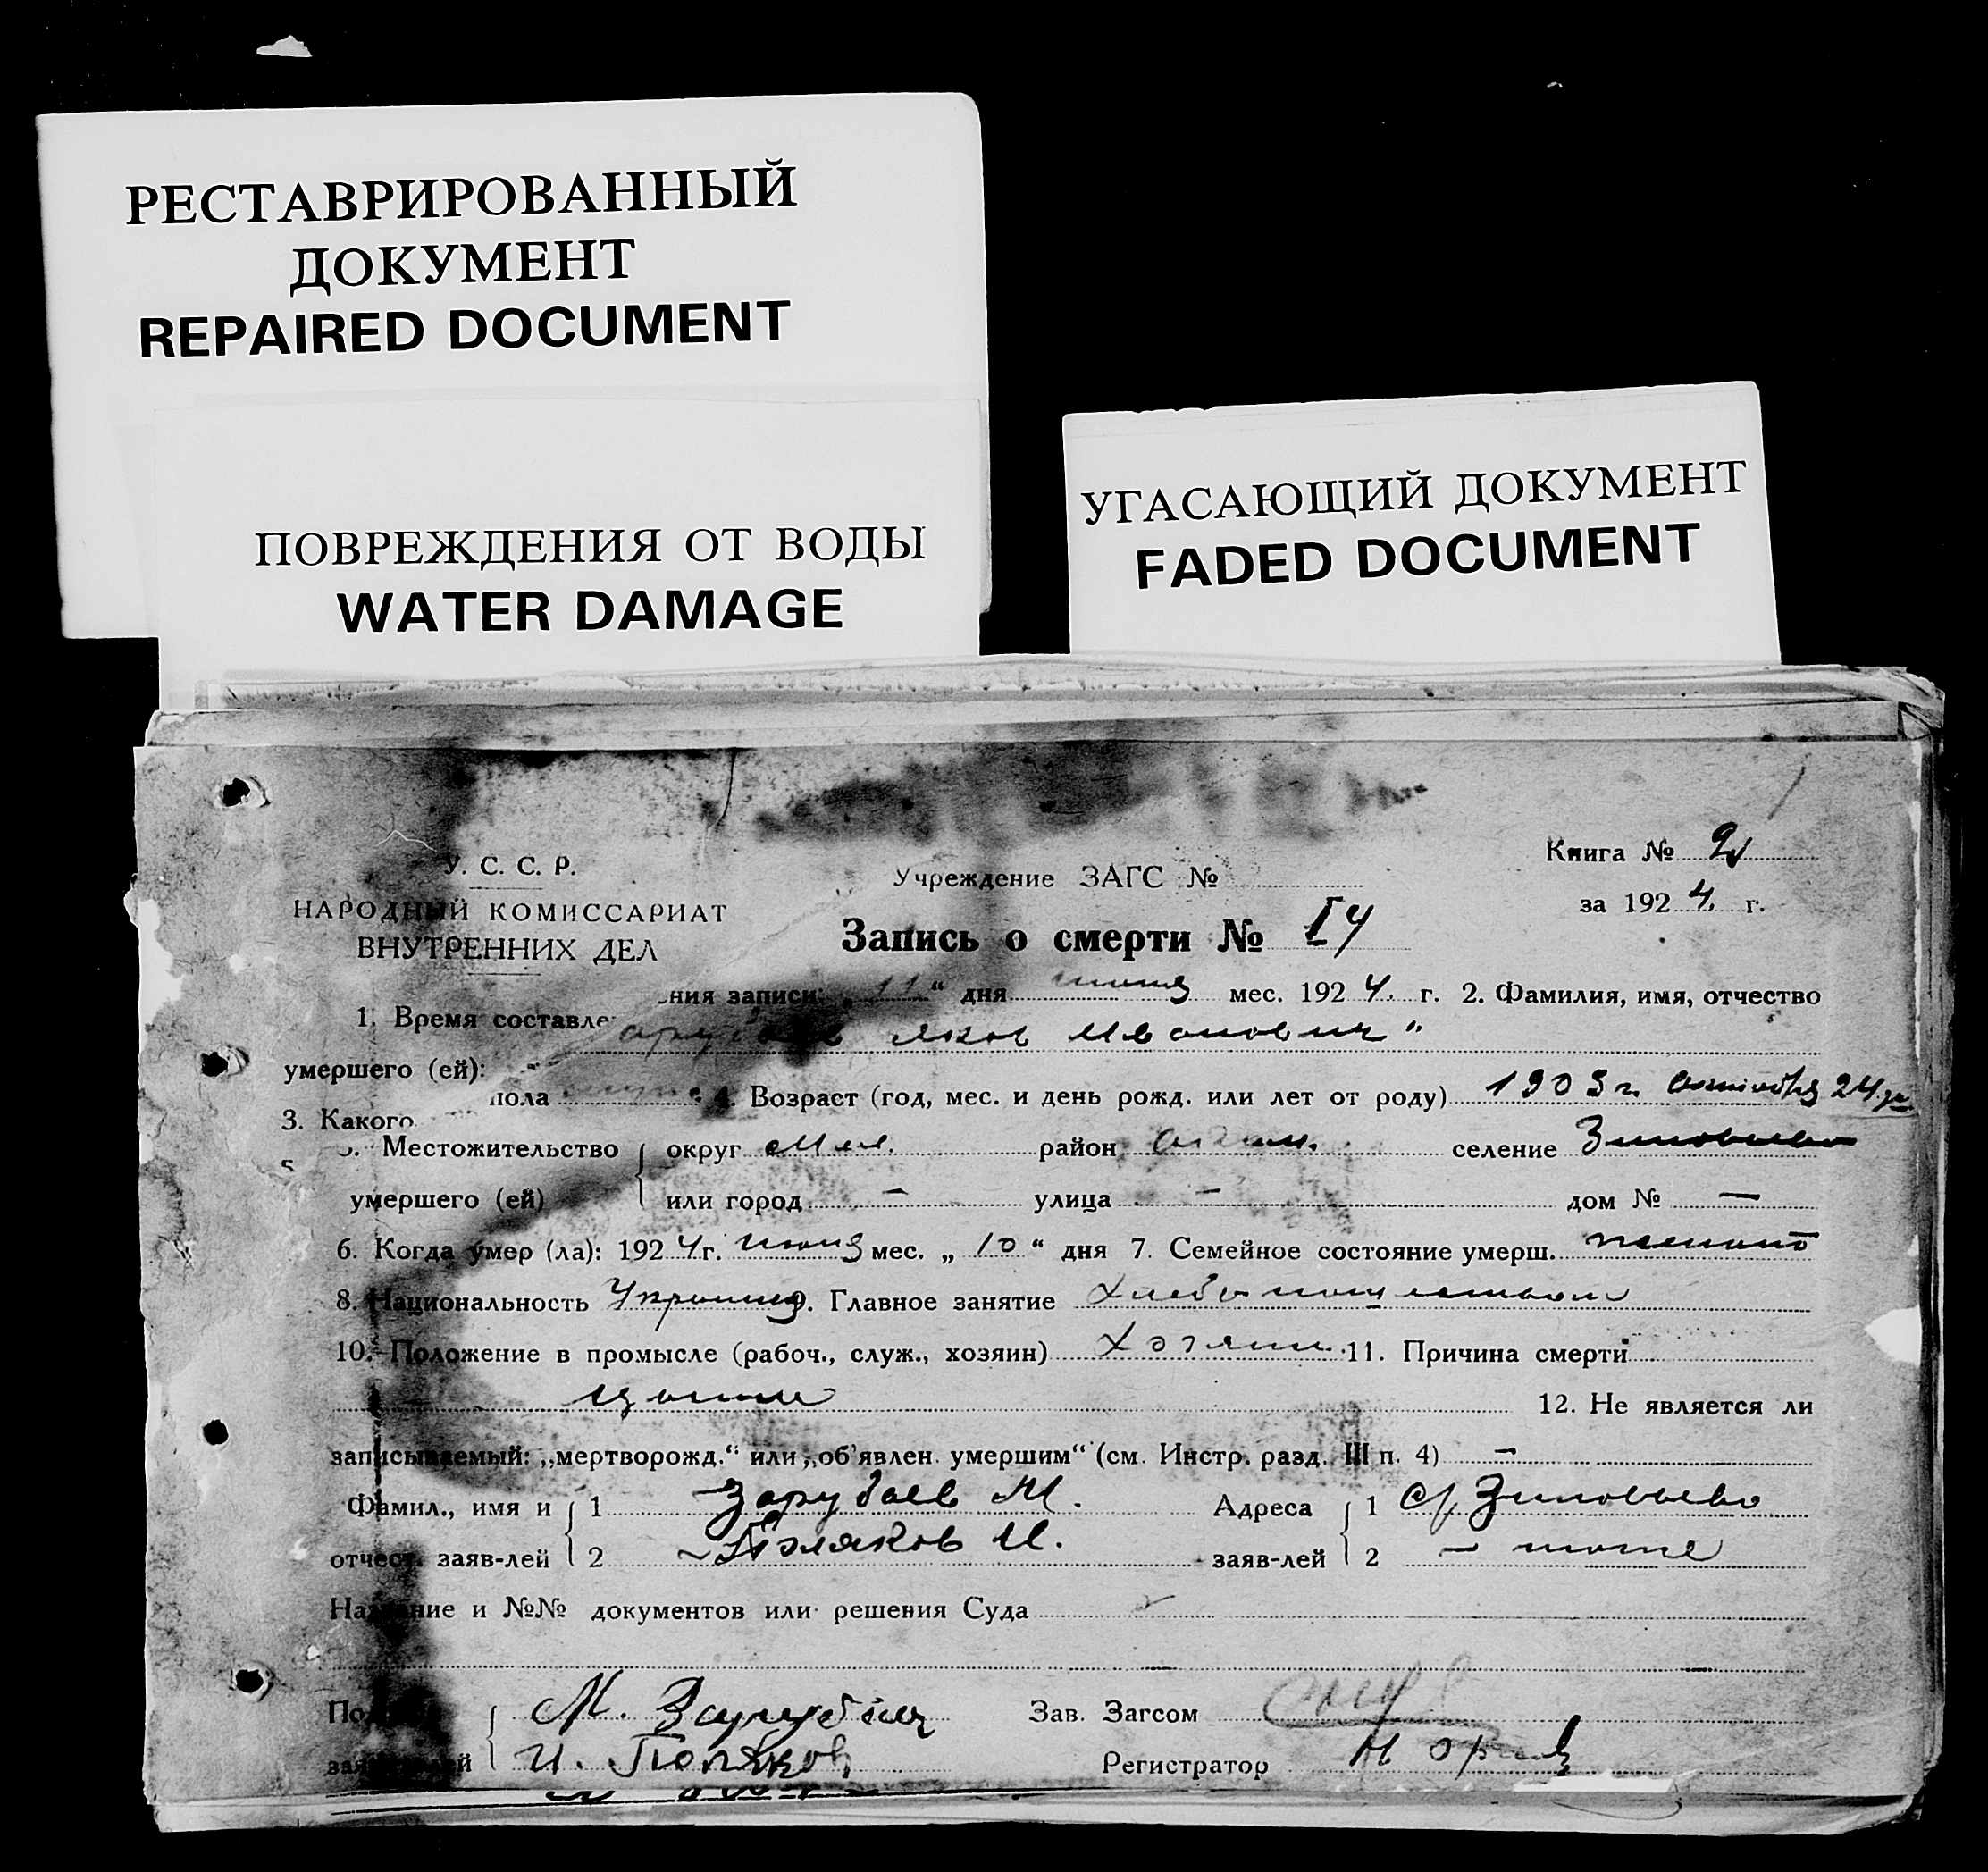 РЕСТАВРИРОВАННЫЙ
ДОКУМЕНТ
REPAIRED DOCUMENT
ПОВРЕЖДЕНИЯ ОТ ВОДЫ
WATER DAMAGE
УГАСАЮЩИЙ ДОКУМЕНТ
FADED DOCUMENT
У. С. С. Р.
НАРОДНЫЙ КОМИССАРИАТ
ВНУТРЕННИХ ДЕЛ
Учреждение ЗАГС №
Книга №
за 1924 г.
Запись о смерти № 14
1. Время составления записи: „11“ дня мес. 1924. г. 2. Фамилия, имя, отчество
умершего (ей): Яков Иванович"
3. Какого пола 4. Возраст (год, мес. и день рожд. или лет от роду) 1903 г. октября 24
5. Местожительство умершего (ей) округ район селение Зиновьево
или город — улица — дом № —
6. Когда умер (ла): 1924 г. июня мес. „10“ дня 7. Семейное состояние умерш.
8. Национальность 9. Главное занятие
10. Положение в промысле (рабоч., служ., хозяин) хозяин. 11. Причина смерти
12. Не является ли
записываемый: „мертворожд.“ или „об'явлен. умершим“ (см. Инстр. разд. III п. 4) —
Фамил., имя и отчест. заяв-лей 1 Зарубаев М. Адреса заяв-лей 1 Зиновьево
2 Поляков И. 2 — тоже
Название и №№ документов или решения Суда
М. Зав. Загсом
И. Поляков Регистратор